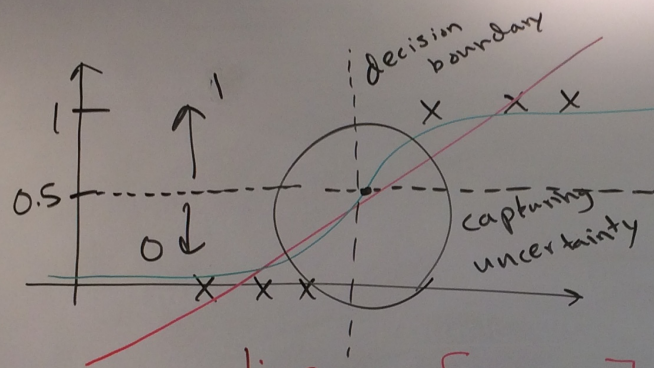 decision
boundary
1
1
0.5
0
capturing
uncertainty